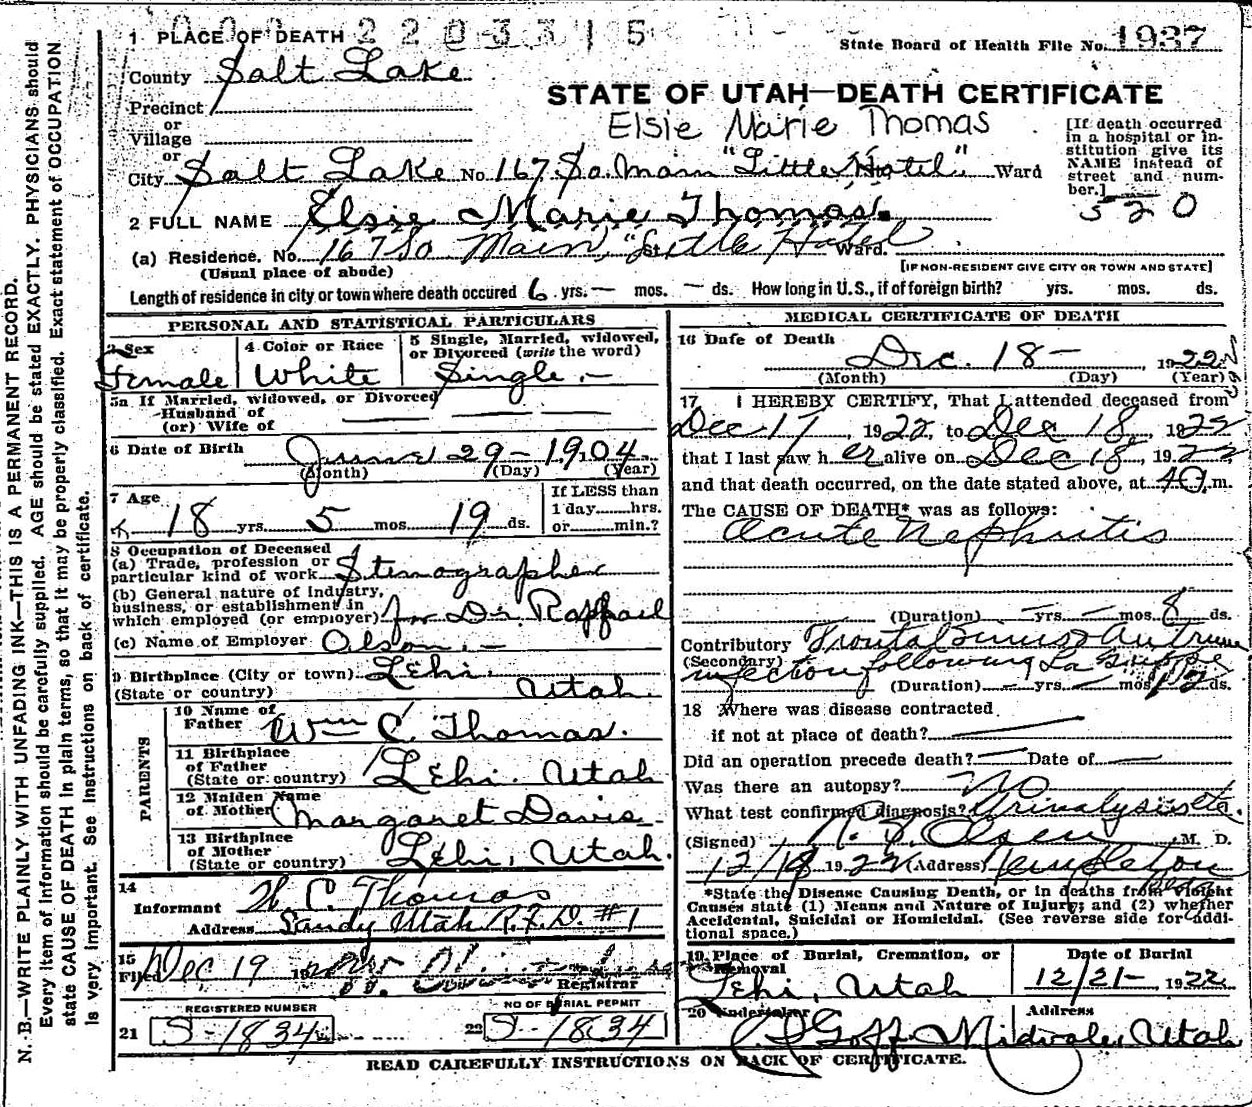 2203315
1 PLACE OF DEATH
State Board of Health File No. 1937
County Salt Lake
Precinct
or
Village
or
City Salt Lake No. 167 So. Main "Little Hotel" Ward
STATE OF UTAH—DEATH CERTIFICATE
Elsie Marie Thomas
[If death occurred in a hospital or institution give its NAME instead of street and number.]
520
2 FULL NAME Elsie Marie Thomas.
(a) Residence. No. 167 So Main, "Little Hotel Ward.
(Usual place of abode)
[IF NON-RESIDENT GIVE CITY OR TOWN AND STATE]
Length of residence in city or town where death occured 6 yrs. — mos. — ds. How long in U.S., if of foreign birth? yrs. mos. ds.
PERSONAL AND STATISTICAL PARTICULARS
3 Sex
Female
4 Color or Race
White
5 Single, Married, widowed, or Divorced (write the word)
Single.—
5a If Married, widowed, or Divorced
Husband of
(or) Wife of
6 Date of Birth June 29 - 1904
(Month) (Day) (Year)
7 Age
18 yrs. 5 mos. 19 ds.
If LESS than
1 day hrs.
or min.?
8 Occupation of Deceased
(a) Trade, profession or
particular kind of work Stenographer
(b) General nature of industry,
business, or establishment in
which employed (or employer) for Dr. Raffael
(c) Name of Employer Olson.—
9 Birthplace (City or town) Lehi.
(State or country) Utah
PARENTS
10 Name of
Father Wm C. Thomas.
11 Birthplace
of Father
(State or country) Lehi. Utah
12 Maiden Name
of Mother Margaret Davis.
13 Birthplace
of Mother
(State or country) Lehi, Utah.
14
Informant W. C. Thomas
Address Sandy Utah R.F.D. #1
15
Filed Dec 19 19
Registrar
REGISTERED NUMBER
21 S-1834
NO OF BURIAL PERMIT
22 S-1834
MEDICAL CERTIFICATE OF DEATH
16 Date of Death
Dec. 18 - 1922
(Month) (Day) (Year)
17 I HEREBY CERTIFY, That I attended deceased from
Dec 17, 1922, to Dec 18, 1922
that I last saw her alive on Dec 18, 1922
and that death occurred, on the date stated above, at m.
The CAUSE OF DEATH* was as follows:
Acute Nephritis
(Duration) — yrs. — mos. 8 ds.
Contributory Frontal Sinus & Antrum
(Secondary) infection following La Grippe
(Duration) — yrs. — mos. 12 ds.
18 Where was disease contracted
if not at place of death?
Did an operation precede death? — Date of —
Was there an autopsy? No
What test confirmed diagnosis? Urinalysis etc.
(Signed) Olsen M. D.
12/18 1922 (Address) Templeton
*State the Disease Causing Death, or in deaths from Violent
Causes state (1) Means and Nature of Injury; and (2) whether
Accidental, Suicidal or Homicidal. (See reverse side for additional space.)
19 Place of Burial, Cremation, or
Removal
Lehi, Utah
Date of Burial
12/21- 1922
20 Undertaker
Goff
Address
Midvale, Utah
READ CAREFULLY INSTRUCTIONS ON BACK OF CERTIFICATE.
N. B.—WRITE PLAINLY WITH UNFADING INK—THIS IS A PERMANENT RECORD.
Every item of information should be carefully supplied. AGE should be stated EXACTLY. PHYSICIANS should
state CAUSE OF DEATH in plain terms, so that it may be properly classified. Exact statement of OCCUPATION
is very important. See instructions on back of certificate.